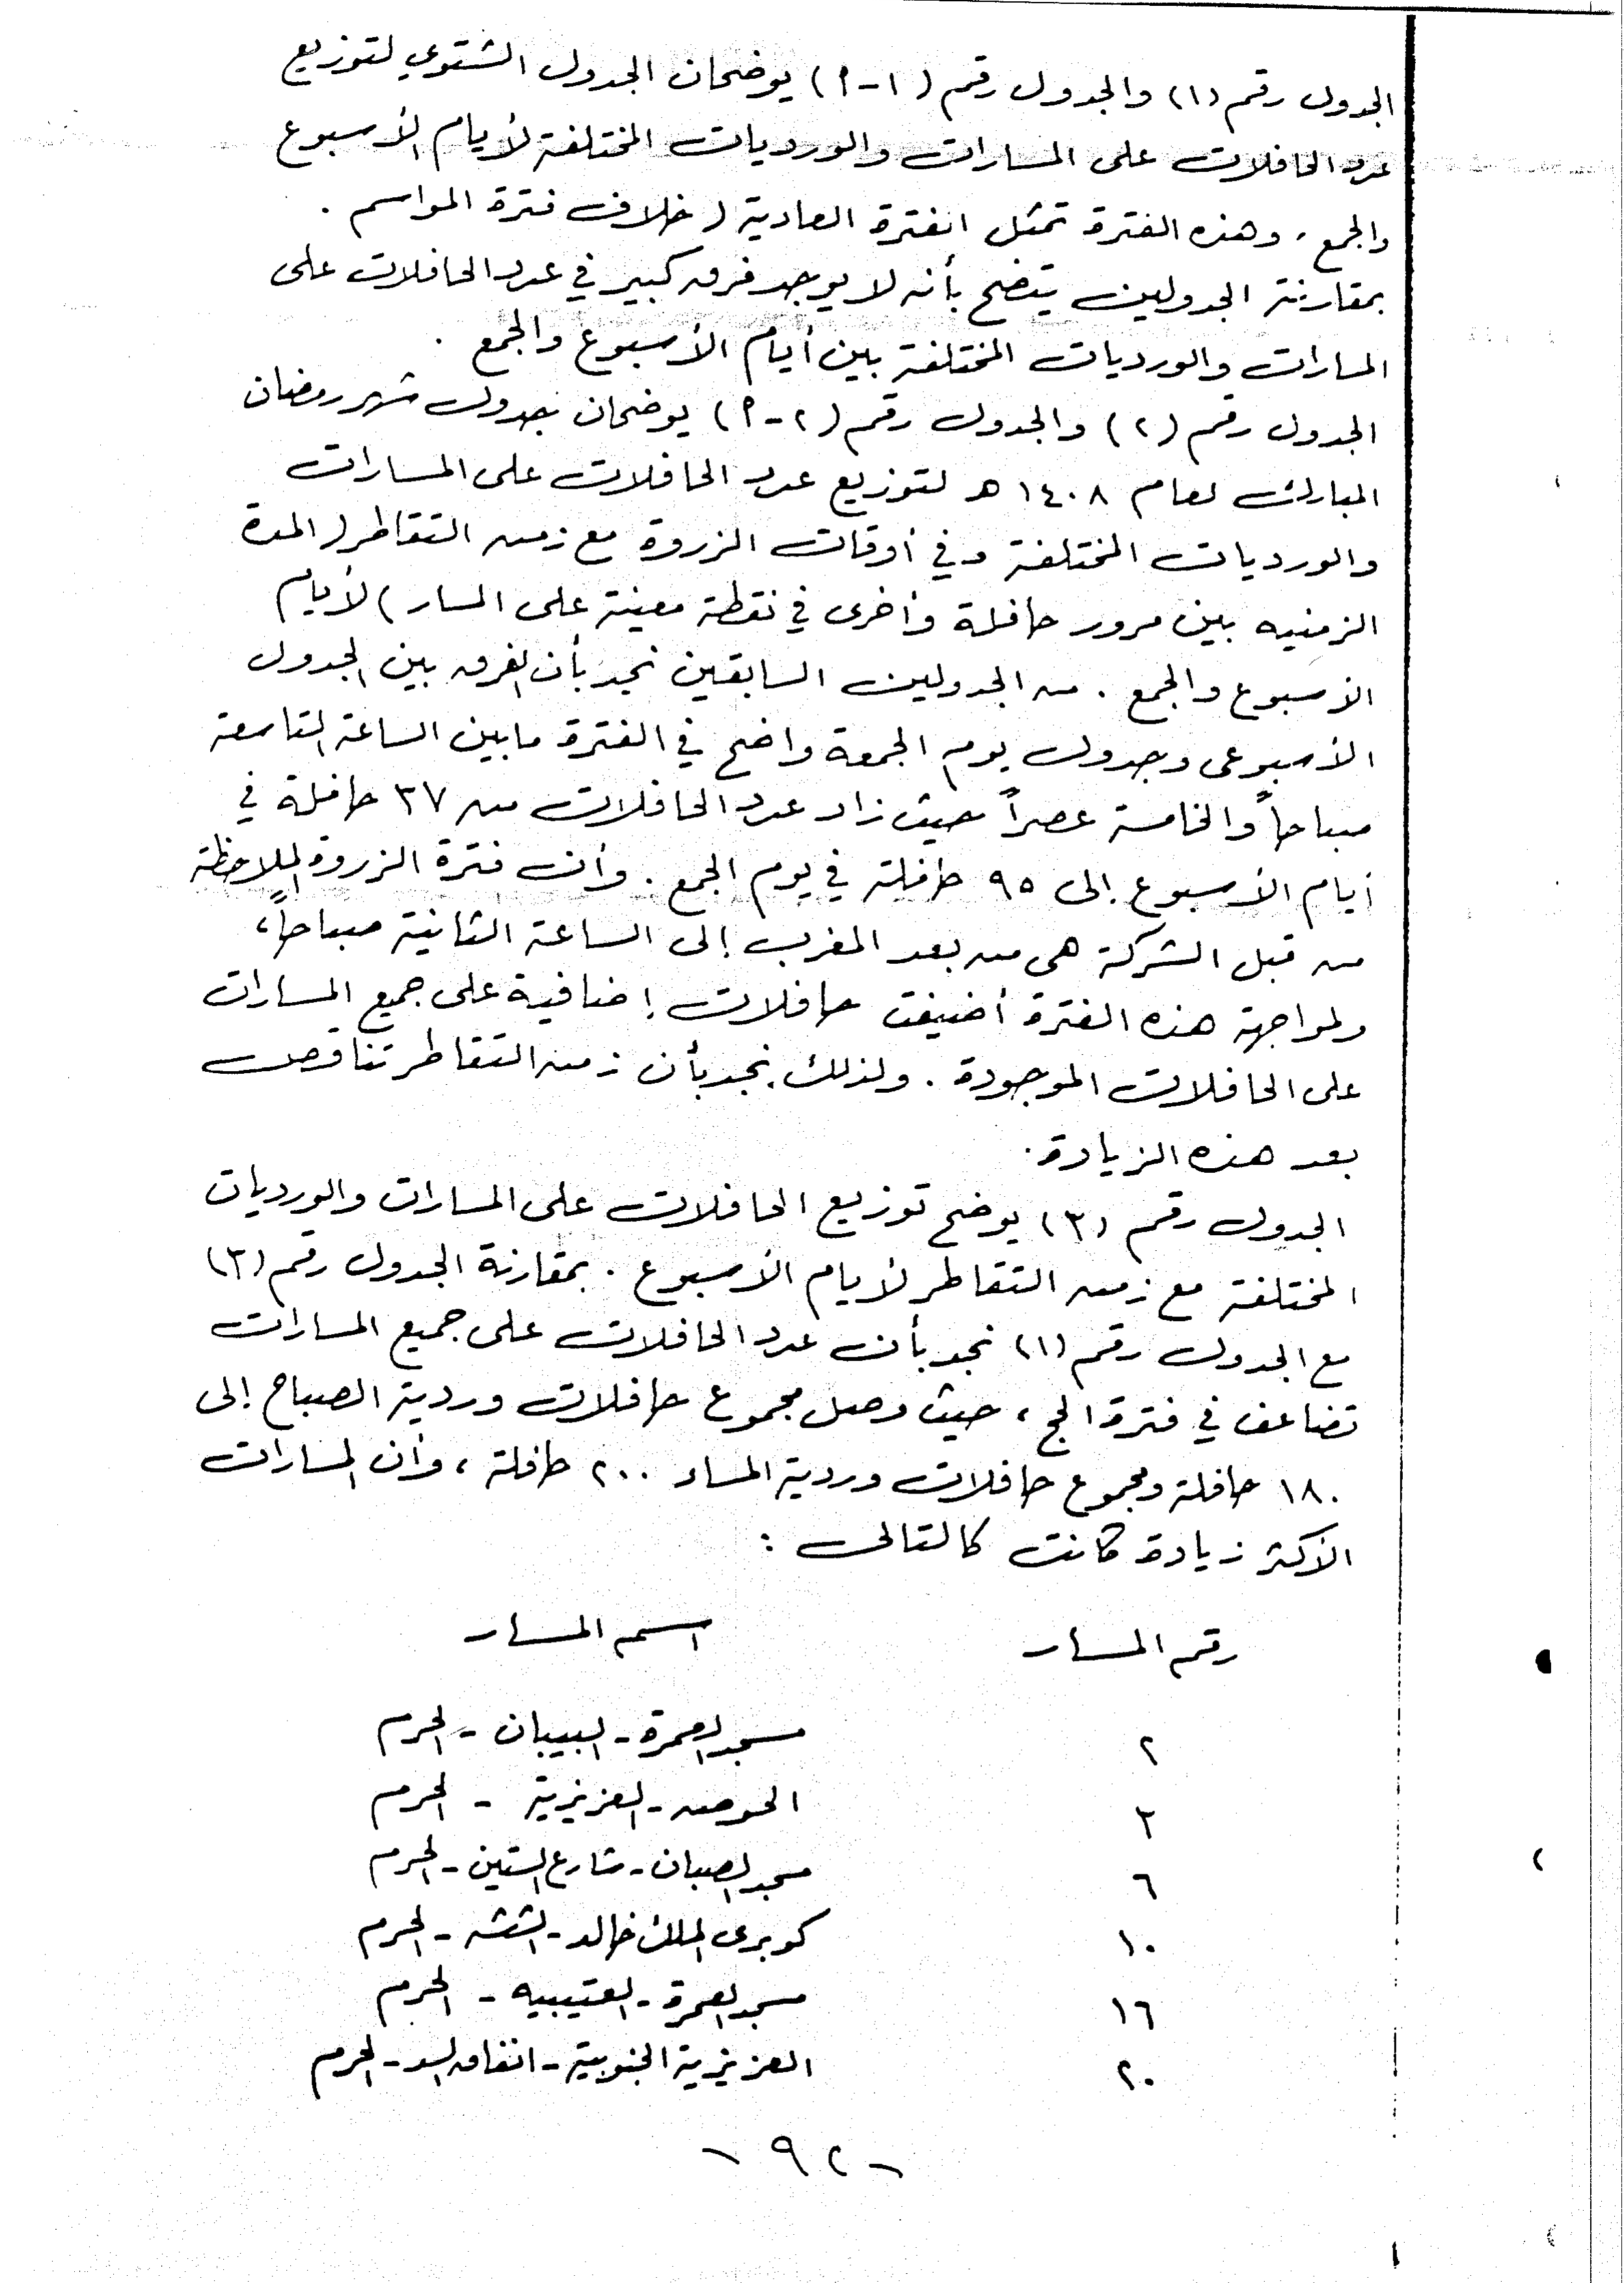 الجدول رقم (١) والجدول رقم (١-٩) يوضحان الجدول الشتوي لتوزيع
عدد الحافلات على المسارات والورديات المختلفة لأيام الأسبوع
والجمع ، وهذه الفترة تمثل الفترة العادية ( خلاف فترة المواسم .
بمقارنة الجدولين يتضح بأنه لا يوجد فرق كبير في عدد الحافلات على
المسارات والورديات المختلفة بين أيام الأسبوع والجمع .
الجدول رقم (٢) والجدول رقم (٢-٩) يوضحان جدول شهر رمضان
المبارك لعام ١٤٠٨ هـ لتوزيع عدد الحافلات على المسارات
والورديات المختلفة وفي أوقات الذروة مع زمن التقاطر ( المدة
الزمنيه بين مرور حافلة وأخرى في نقطة معينة على المسار ) لأيام
الأسبوع والجمع . من الجدولين السابقين نجد بأن الفرق بين الجدول
الأسبوعى وجدول يوم الجمعة واضح في الفترة مابين الساعة التاسعة
صباحاً والخامسة عصراً حيث زاد عدد الحافلات من ٣٧ حافلة في
أيام الأسبوع إلى ٩٥ حافلة في يوم الجمع . وأن فترة الذروة الملاحظة
من قبل الشركة هى من بعد المغرب إلى الساعة الثانية صباحاً ،
ولمواجهة هذه الفترة أضيفت حافلات إضافية على جميع المسارات
على الحافلات الموجودة . ولذلك نجد بأن زمن التقاطر تناقص
بعد هذه الزيادة .
الجدول رقم (٣) يوضح توزيع الحافلات على المسارات والورديات
المختلفة مع زمن التقاطر لأيام الأسبوع . بمقارنة الجدول رقم (٣)
مع الجدول رقم (١) نجد بأن عدد الحافلات على جميع المسارات
تضاعف في فترة الحج ، حيث وصل مجموع حافلات وردية الصباح إلى
١٨٠ حافلة ومجموع حافلات وردية المساء ٢٠٠ حافلة ، وأن المسارات
الأكثر زيادة كانت كالتالى :
رقم المسار اسم المسار
٢ مسجد العمرة - البيبان - الحرم
٣ الحوض - العزيزية - الحرم
٦ مسجد الصبان - شارع الستين - الحرم
١٠ كوبرى الملك خالد - الششه - الحرم
١٦ مسجد العمرة - العتيبيه - الحرم
٢٠ العزيزية الجنوبية - انفاق السد - الحرم
- ٩٢ -